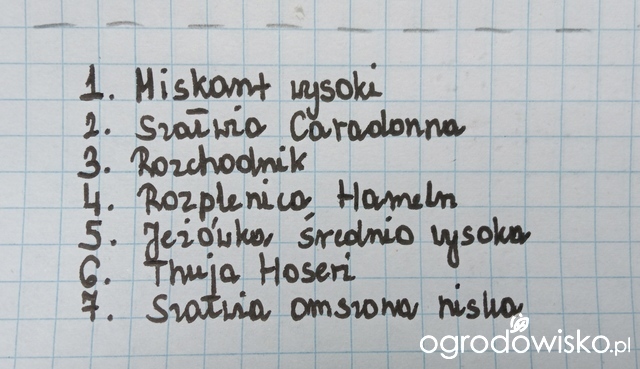 1. Miskant wysoki
2. Szałwia Caradonna
3. Rozchodnik
4. Rozplenica Hameln
5. Jeżówka średnio wysoka
6. Thuja Hoseri
7. Szałwia omszona niska
ogrodowisko.pl